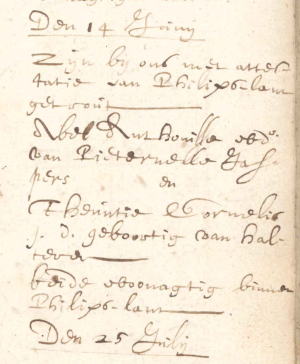 Den 14 Junij
Zijn bij ons met attes
tatie van Philips-lant
getrout
Abel Anthonisse wedr.
van Pieternelle Jas-
pers en
Theuntie Cornelis
j. d. geboortig van Hal-
teren
beide woonagtig binnen
Philips-lant
Den 25 Julij